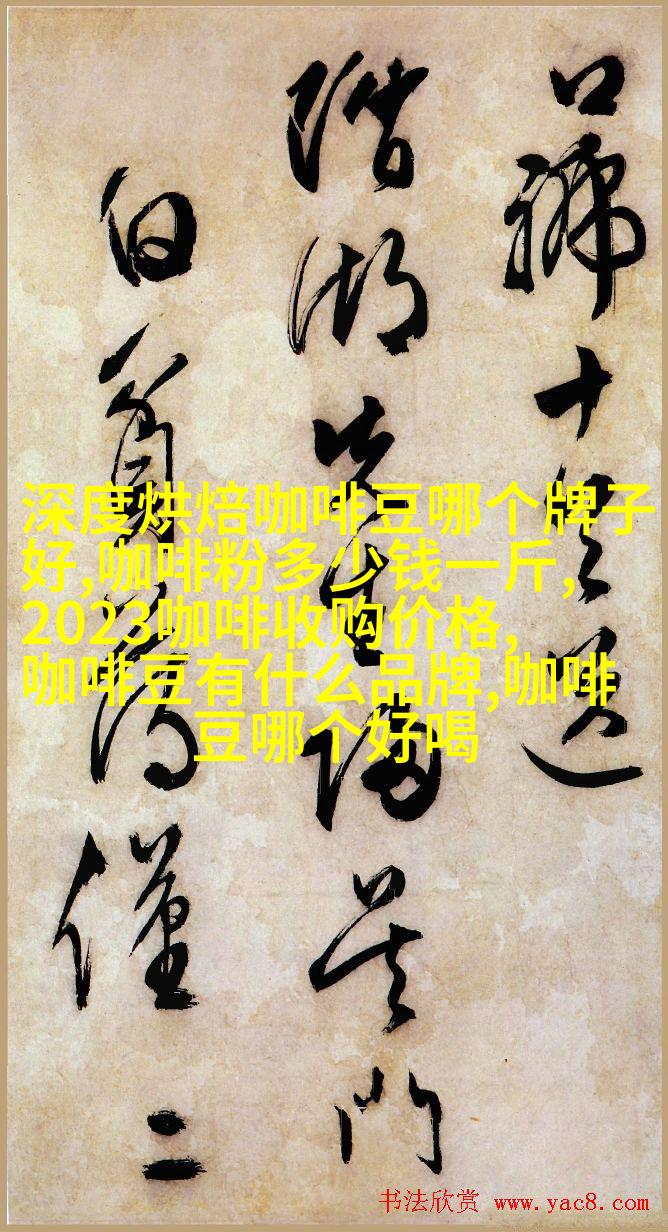 口號十送
湖先生歸吳門
白僅二
深度烘焙咖啡豆哪个牌子
好,咖啡粉多少钱一斤,
2023咖啡收购价格,
咖啡豆有什么品牌,咖啡
豆哪个好喝
书法欣赏 www.yac8.com